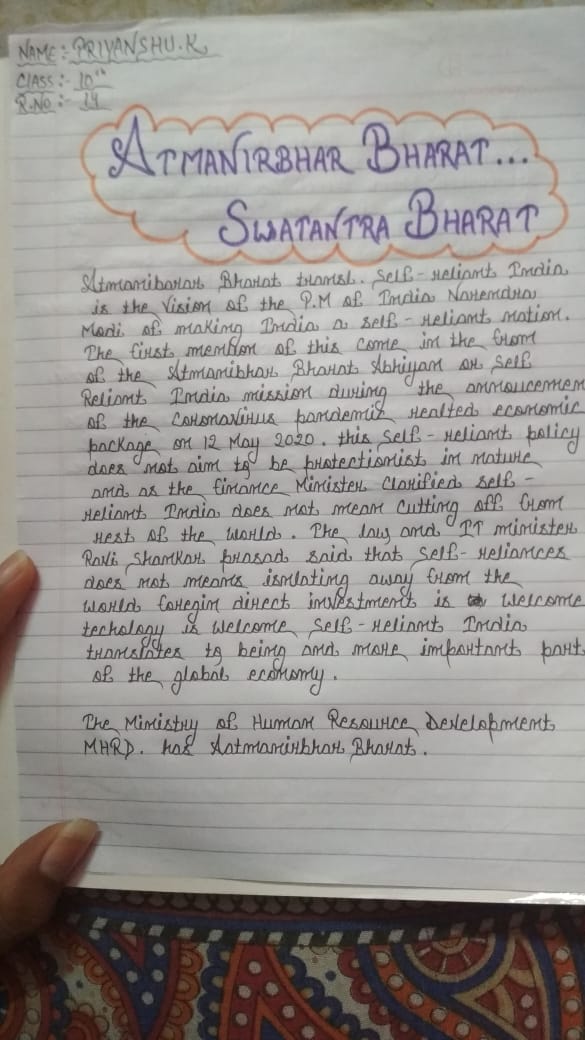 NAME:- PRIYANSHU.K
CLASS:- 10th
R.No:- 14
ATMANIRBHAR BHARAT...
SWATANTRA BHARAT
Atmanibarar Bharat transl. Self-reliant India
is the Vision of the P.M of India Narendra
Modi of making India a self-reliant nation.
The first mention of this come in the from
of the Atmanibhar Bharat Abhiyan or Self
Reliant India mission during the announcemen
of the Coronavirus pandemix realted economic
package on 12 May 2020. this Self-reliant policy
does not aim to be protectionist in nature
and as the finance Minister Clarified self-
reliant India does not mean Cutting off from
rest of the world. The law and IT minister
Ravi Shankar prasad said that self-reliances
does not means isnlating away from the
world foregin direct investment is welcome
techology is welcome Self-relinat India
translates to being and more important part
of the global economy.
The Ministry of Human Resource Development
MHRD. has Aatmanirbhar Bharat.